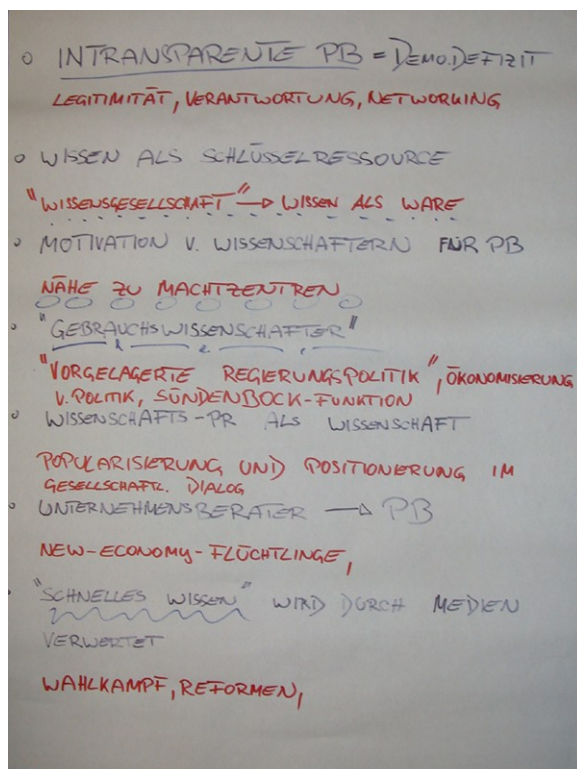 o INTRANSPARENTE PB = DEMO.DEFIZIT
LEGITIMITÄT, VERANTWORTUNG, NETWORKING
o WISSEN ALS SCHLÜSSELRESSOURCE
"WISSENSGESELLSCHAFT" → WISSEN ALS WARE
o MOTIVATION V. WISSENSCHAFTERN FÜR PB
NÄHE ZU MACHTZENTREN
o "GEBRAUCHSWISSENSCHAFTER"
"VORGELAGERTE REGIERUNGSPOLITIK", ÖKONOMISIERUNG
V. POLITIK, SÜNDENBOCK-FUNKTION
o WISSENSCHAFTS-PR ALS WISSENSCHAFT
POPULARISIERUNG UND POSITIONIERUNG IM
GESELLSCHAFTL. DIALOG
o UNTERNEHMENSBERATER → PB
NEW-ECONOMY-FLÜCHTLINGE,
o "SCHNELLES WISSEN" WIRD DURCH MEDIEN
VERWERTET
WAHLKAMPF, REFORMEN,